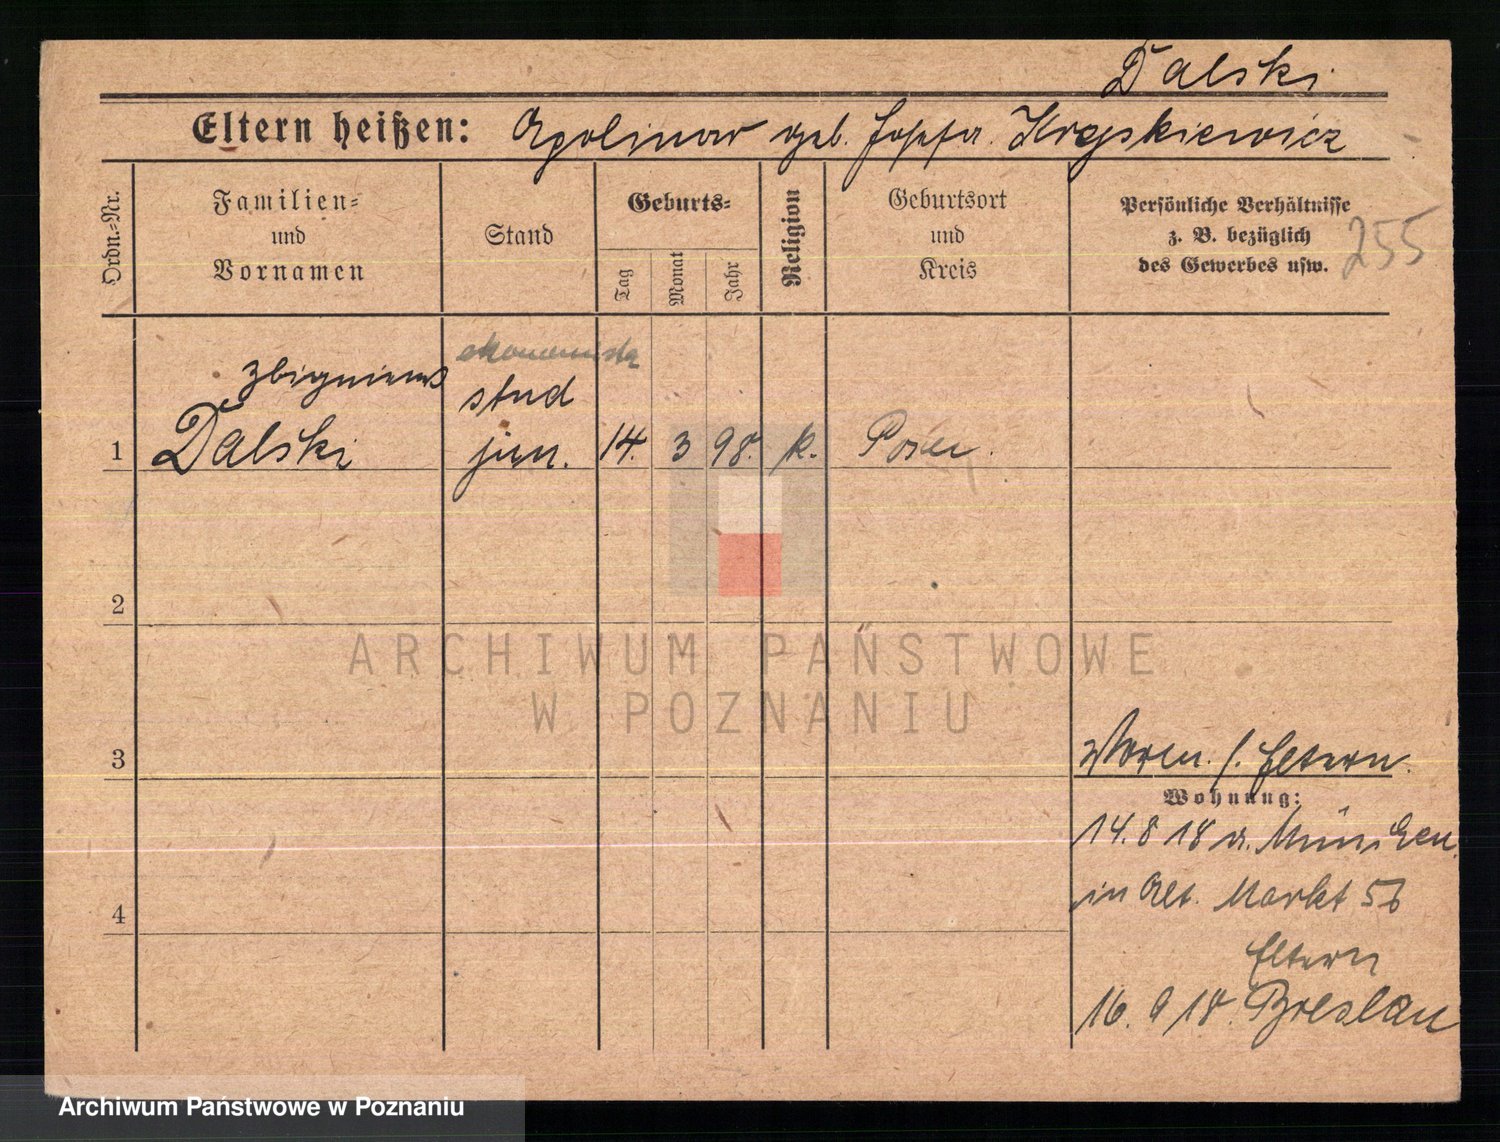 Dalski
Eltern heißen: Apolinar geb. Josefa Krajskiewicz
Ordn.-Nr.
Familien-
und
Vornamen
Stand
Geburts-
Tag
Monat
Jahr
Religion
Geburtsort
und
Kreis
Persönliche Verhältnisse
z. B. bezüglich
des Gewerbes usw.
255
ekonomista
Zbigniew
stud
1 Dalski jur. 14. 3 98. k. Posen.
2
ARCHIWUM PAŃSTWOWE
W POZNANIU
3
Vorm. s. Eltern.
Wohnung:
14. 8 18 a. München.
in Alt. Markt 56
4
Eltern
16. 9 18. Breslau
Archiwum Państwowe w Poznaniu